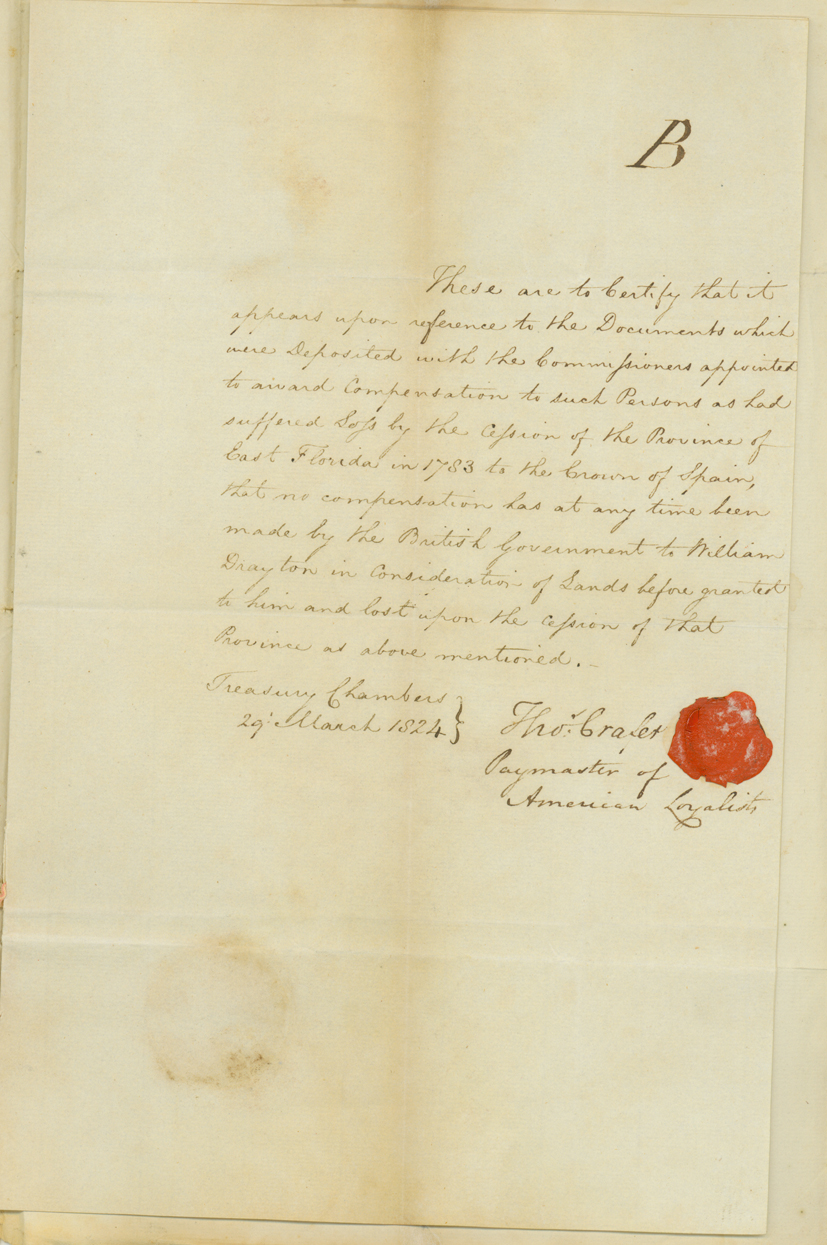 B
These are to Certify that it
appears upon reference to the Documents which
were Deposited with the Commissioners appointed
to award Compensation to such Persons as had
suffered Loss by the Cession of the Province of
East Florida in 1783 to the Crown of Spain,
that no compensation has at any time been
made by the British Government to William
Drayton in Consideration of Lands before granted
to him and lost upon the Cession of that
Province as above mentioned.
Treasury Chambers
29 March 1824
Thos. Crafer
Paymaster of
American Loyalists